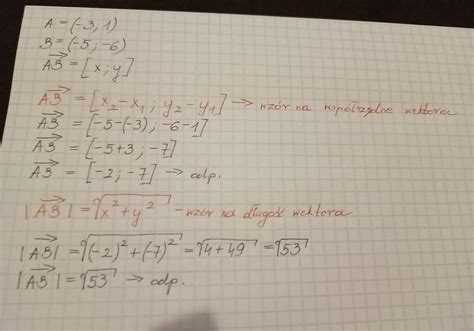 A = (-3; 1)
B = (-5; -6)
AB = [x; y]
AB = [x₂-x₁; y₂-y₁] → wzór na współrzędne wektora
AB = [-5-(-3); -6-1]
AB = [-5+3; -7]
AB = [-2; -7] → odp.
|AB| = √x²+y² - wzór na długość wektora
|AB| = √(-2)²+(-7)² = √4+49 = √53
|AB| = √53 → odp.